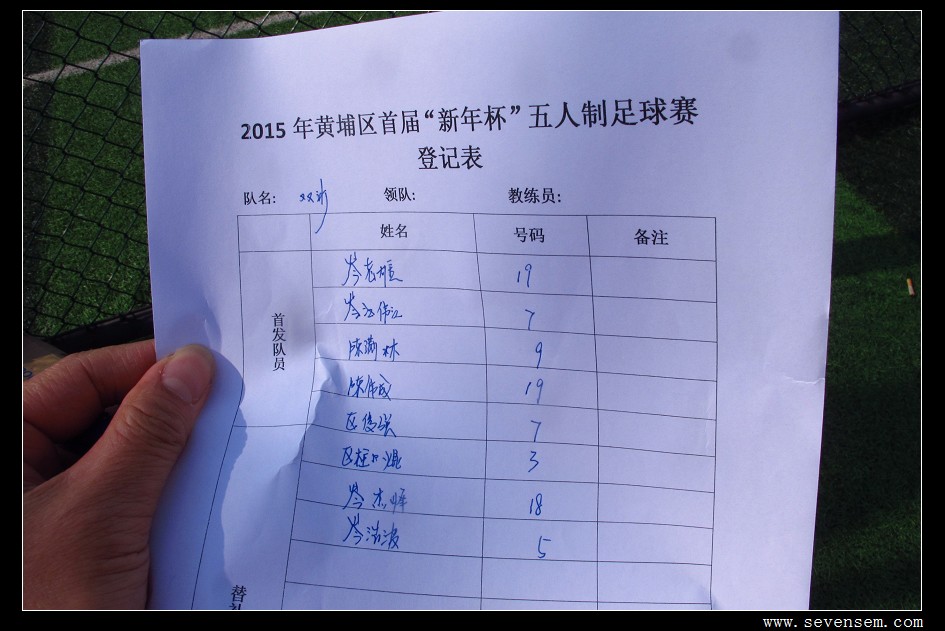 2015 年黄埔区首届“新年杯”五人制足球赛
登记表
队名: 双沙 领队: 教练员:
姓名 号码 备注
首发队员
岑志雄 19
岑 伟江 7
陈满林 9
陈伟成 19
区俊强 7
区 3
岑杰峰 18
岑浩波 5
替补
www.sevensem.com